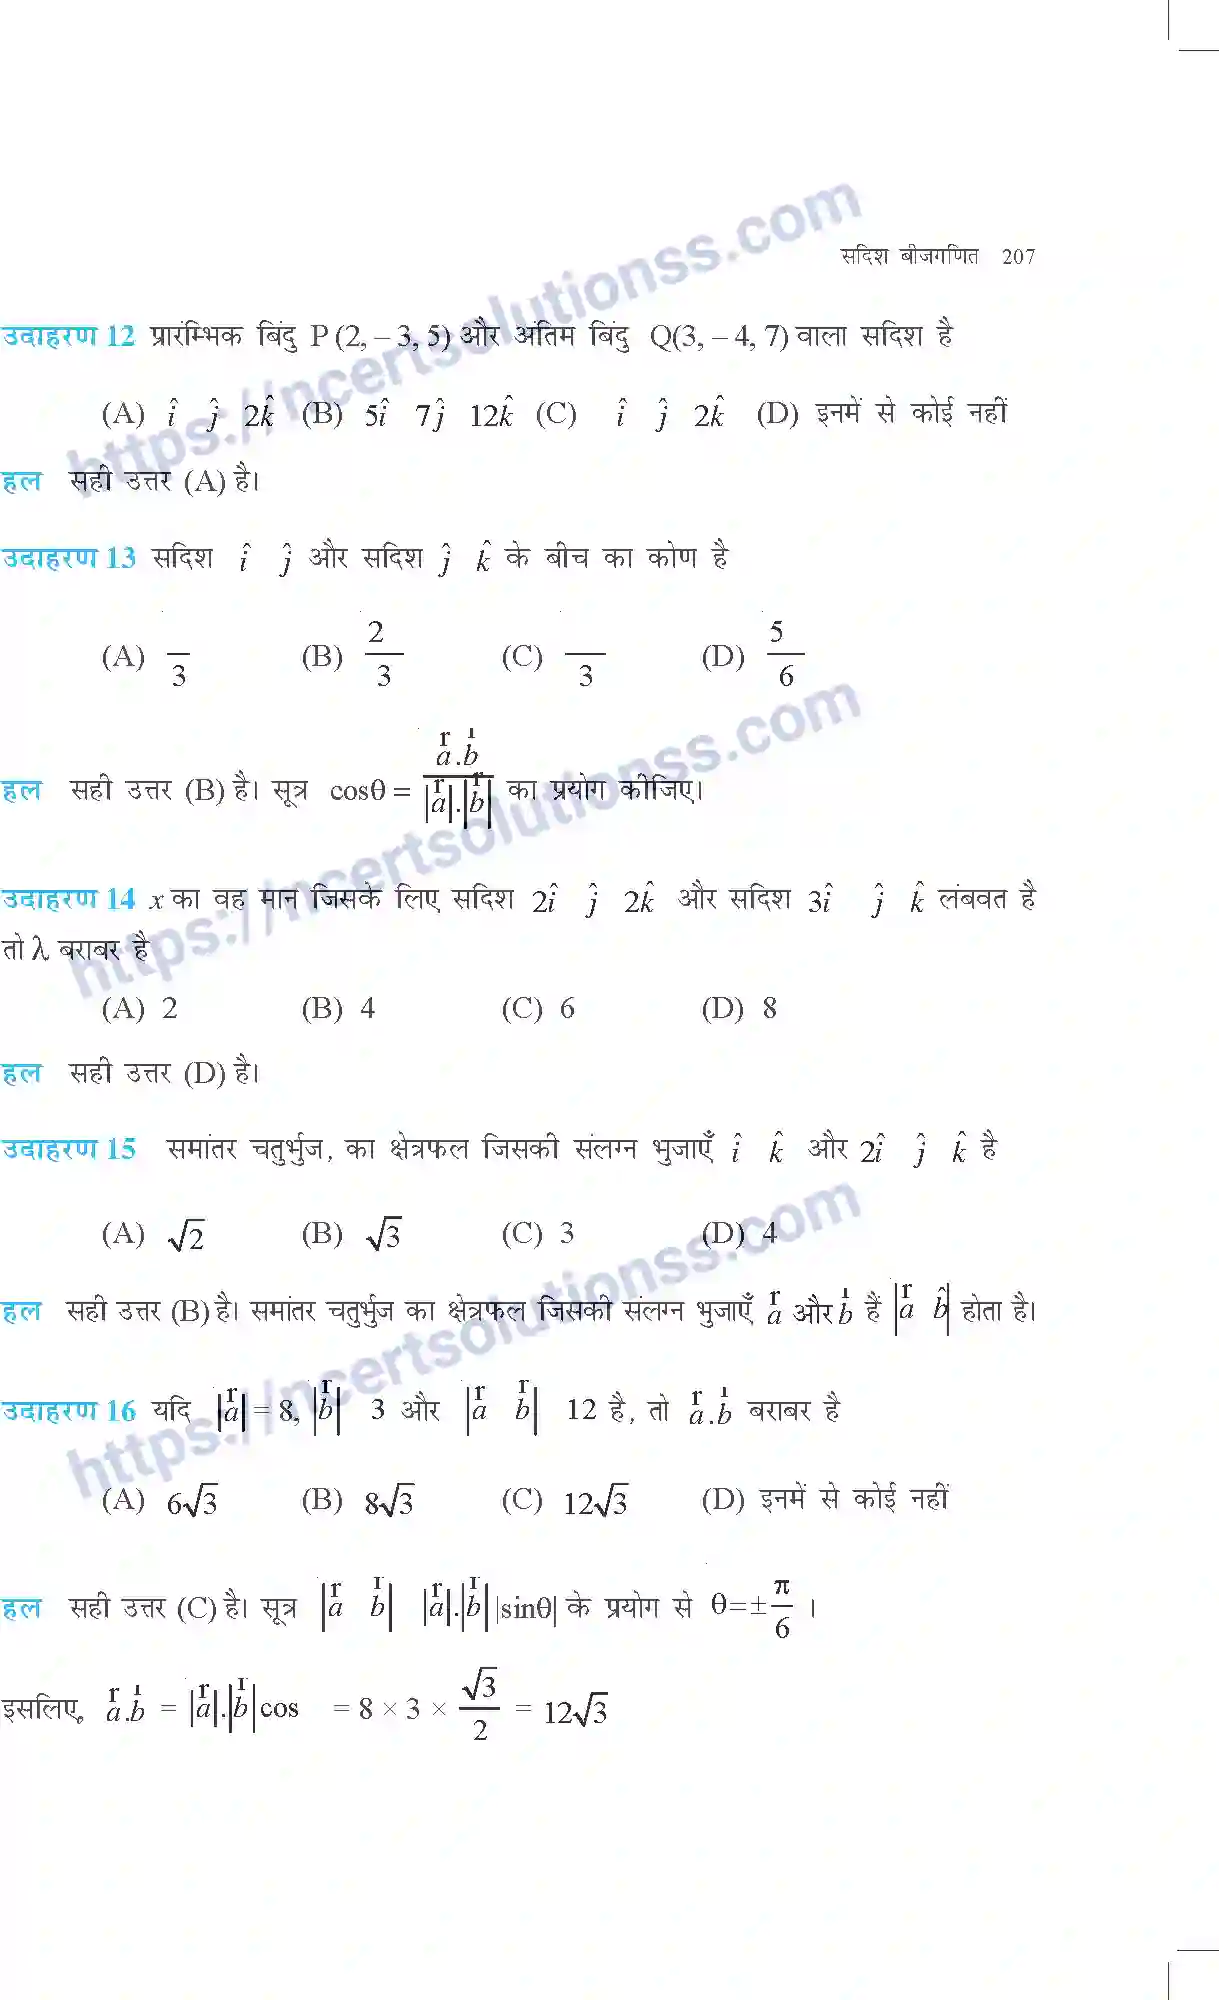 सदिश बीजगणित 207
उदाहरण 12 प्रारंम्भिक बिंदु P (2, – 3, 5) और अंतिम बिंदु Q(3, – 4, 7) वाला सदिश है
(A) î ĵ 2k̂ (B) 5î 7ĵ 12k̂ (C) î ĵ 2k̂ (D) इनमें से कोई नहीं
हल सही उत्तर (A) है।
उदाहरण 13 सदिश î ĵ और सदिश ĵ k̂ के बीच का कोण है
(A) /3 (B) 2/3 (C) /3 (D) 5/6
हल सही उत्तर (B) है। सूत्र cosθ = a.b/|a|.|b| का प्रयोग कीजिए।
उदाहरण 14 x का वह मान जिसके लिए सदिश 2î ĵ 2k̂ और सदिश 3î ĵ k̂ लंबवत है
तो λ बराबर है
(A) 2 (B) 4 (C) 6 (D) 8
हल सही उत्तर (D) है।
उदाहरण 15 समांतर चतुर्भुज, का क्षेत्रफल जिसकी संलग्न भुजाएँ î k̂ और 2î ĵ k̂ है
(A) √2 (B) √3 (C) 3 (D) 4
हल सही उत्तर (B) है। समांतर चतुर्भुज का क्षेत्रफल जिसकी संलग्न भुजाएँ a और b हैं |a b̂| होता है।
उदाहरण 16 यदि |a| = 8, |b| 3 और |a b| 12 है, तो a.b बराबर है
(A) 6√3 (B) 8√3 (C) 12√3 (D) इनमें से कोई नहीं
हल सही उत्तर (C) है। सूत्र |a b| |a|.|b| |sinθ| के प्रयोग से θ=±π/6 ।
इसलिए, a.b = |a|.|b| cos = 8 × 3 × √3/2 = 12√3
https://ncertsolutionss.com
https://ncertsolutionss.com
https://ncertsolutionss.com